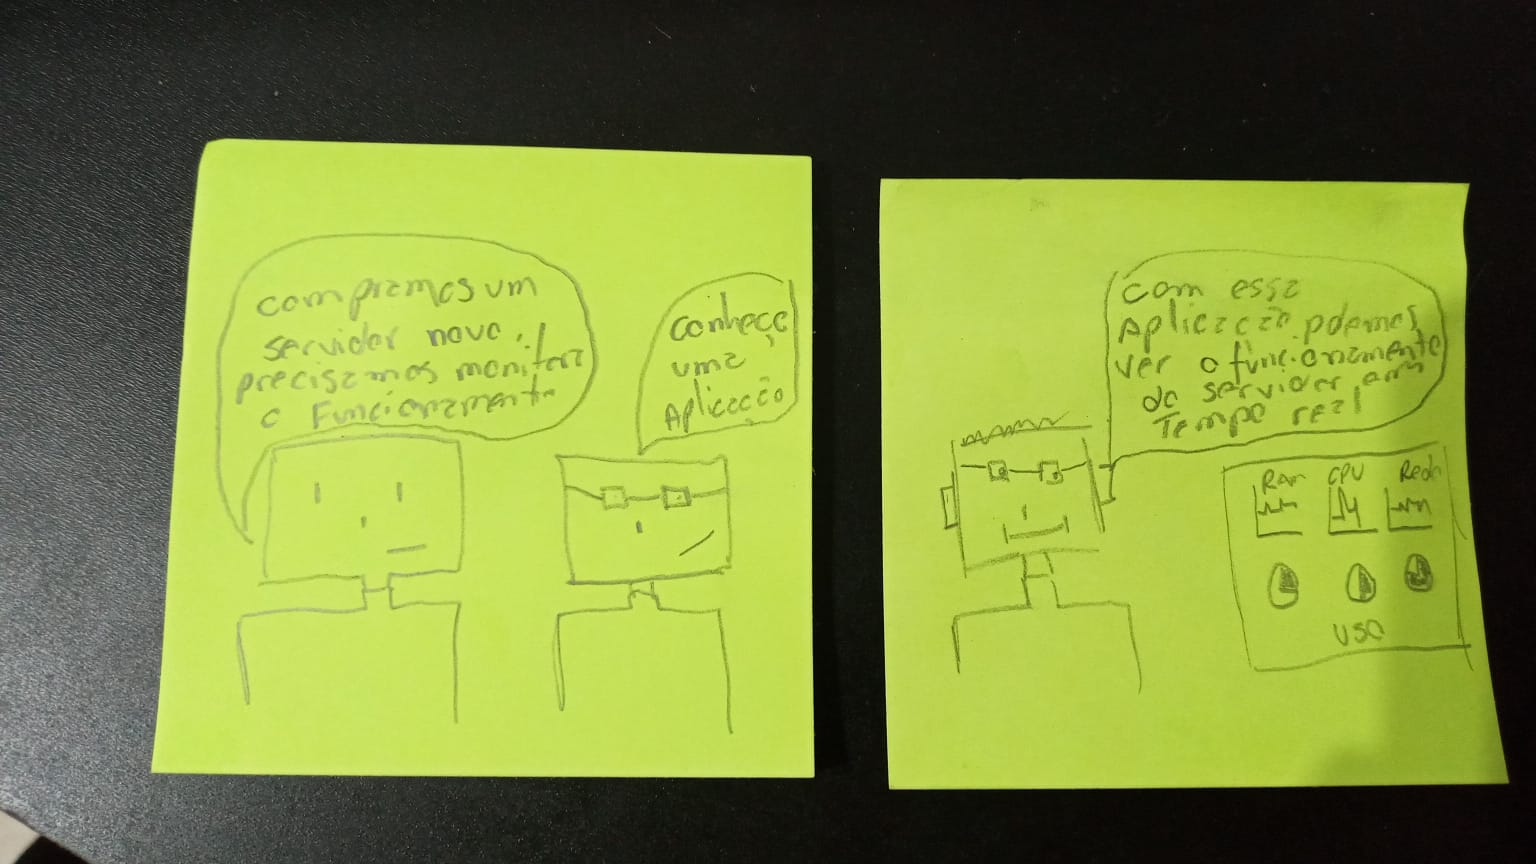 compramos um
servidor novo,
precisamos monitora
o Funcionamento
conheço
uma
Aplicação
com essa
Aplicação podemos
ver o funcionamento
do servidor em
Tempo real
Ram CPU Rede
USO